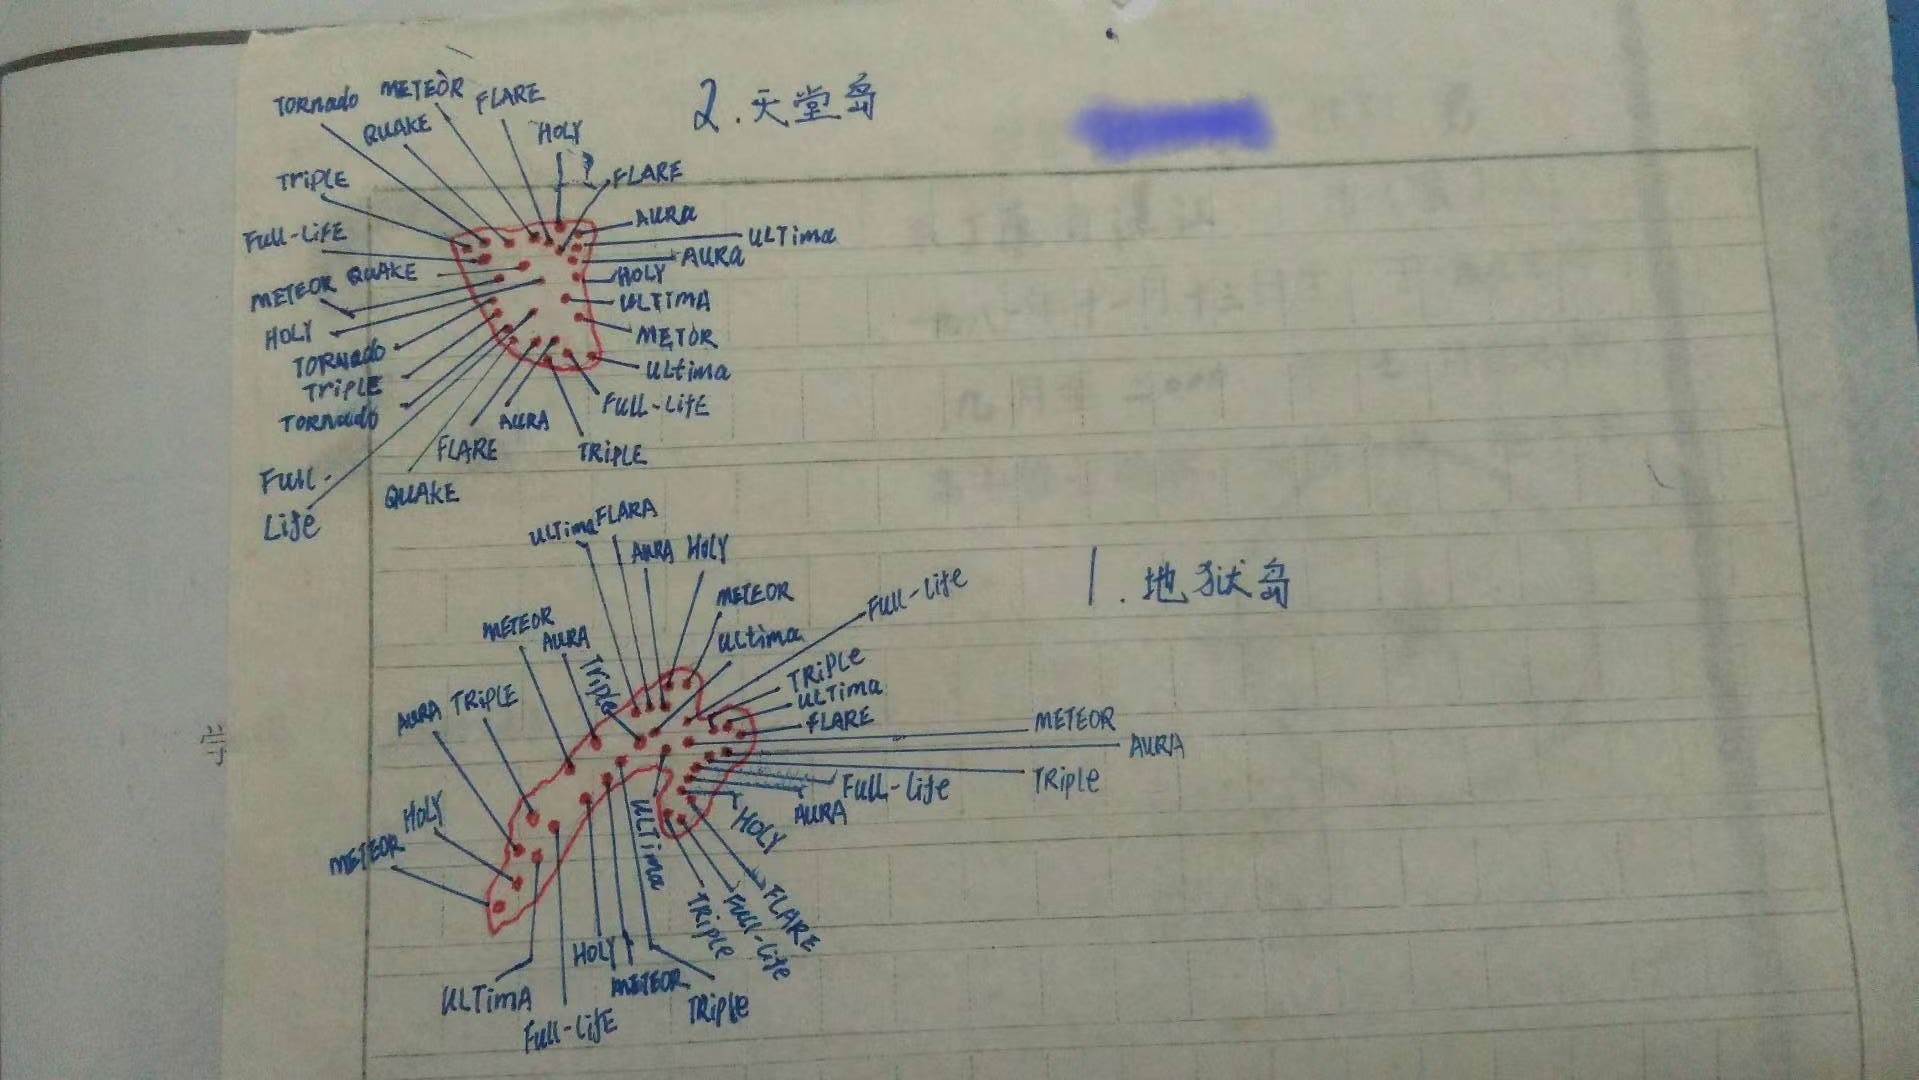 TORnado METEOR FLARE
QUAKE
HOLY
2.天堂岛
?
TRiPLE
FLARE
AURa
FuLL-LiFE
ULTima
AURa
METEOR QUAKE
HOLY
ULTiMA
HOLY
METOR
TORNado
ULtima
TRiPLE
FuLL-LifE
TORnado
AURA
FLARE
TRiPLE
FuLL-
Life
QUAKE
ULTima FLARA
AURA HOLY
METEOR
FuLL-Life
1.地狱岛
METEOR
AURA
ULtima
TRiPLe
TRiPLe
ULTima
AURA TRiPLE
FLARE
METEOR
AURA
TRiPLe
FuLL-Life
AURA
HOLY
HOLY
ULTima
METEOR
FLARE
FuLL-Life
TRiPLe
HOLY
METEOR
ULTimA
TRiPLe
FuLL-LifE
学